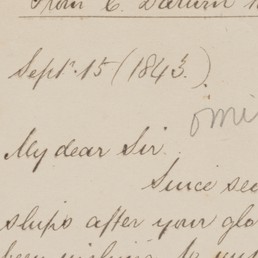 From C. Darwin
Sept. 15 (1843).
omi
My dear Sir.
Since see
ships after your glo
been wishing to